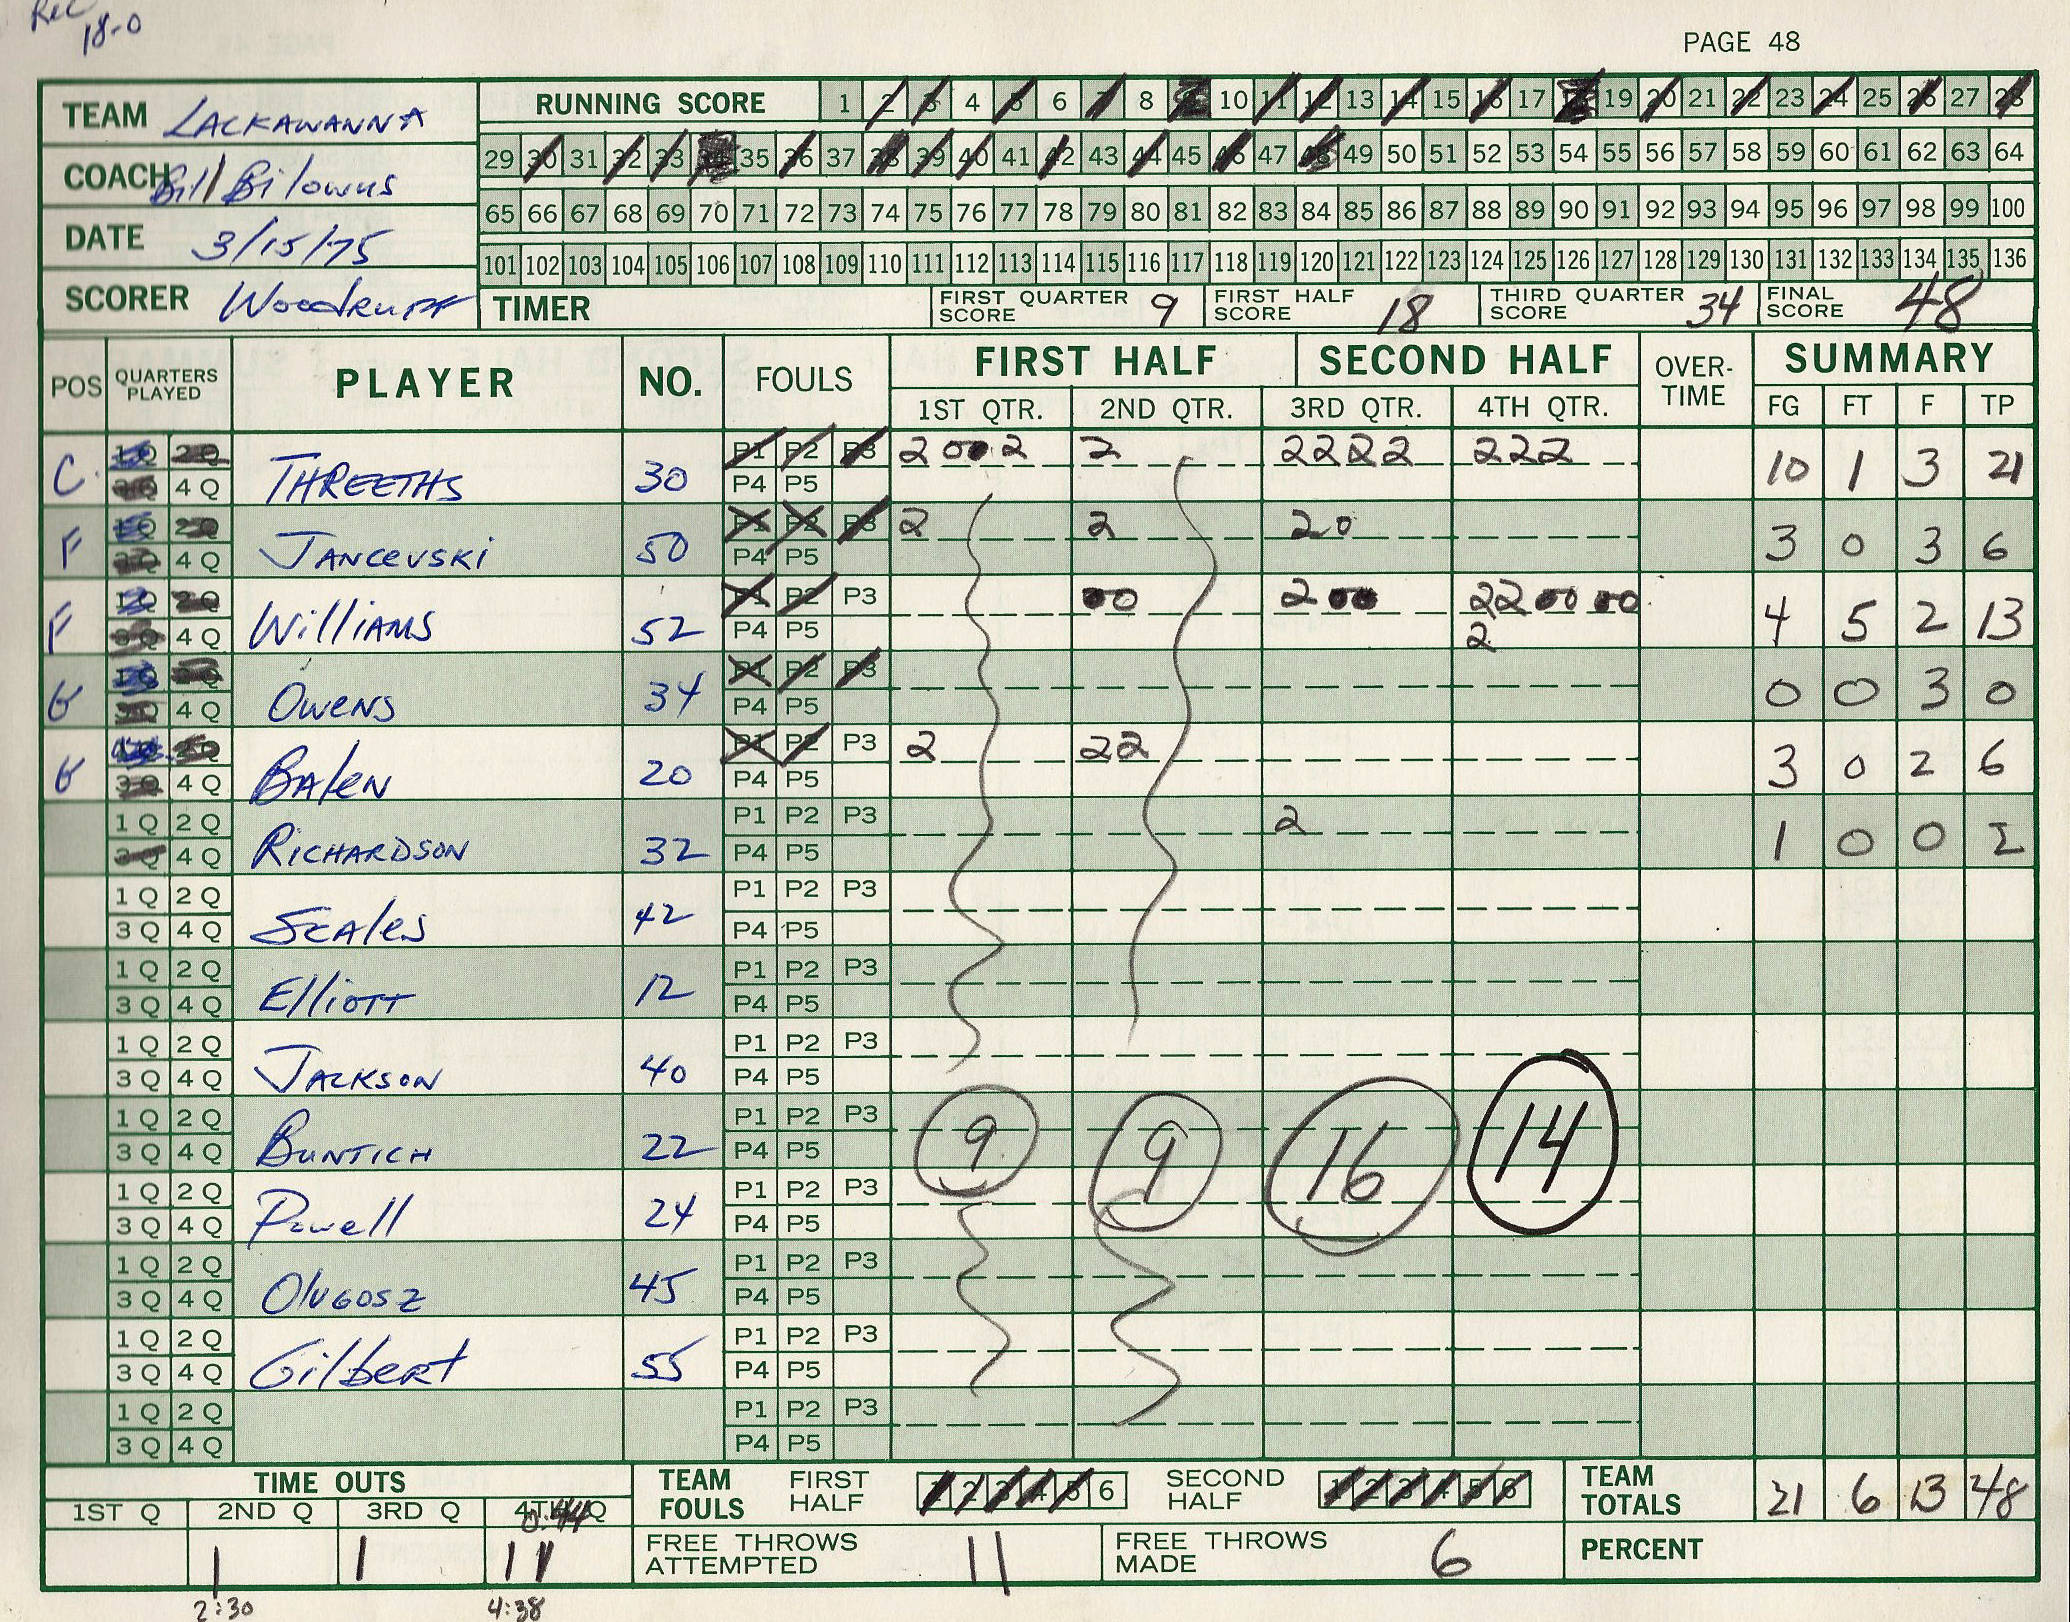 Rec
18-0
PAGE 48
TEAM LACKAWANNA
RUNNING SCORE 1 2 3 4 5 6 7 8 9 10 11 12 13 14 15 16 17 18 19 20 21 22 23 24 25 26 27 28
29 30 31 32 33 34 35 36 37 38 39 40 41 42 43 44 45 46 47 48 49 50 51 52 53 54 55 56 57 58 59 60 61 62 63 64
COACH Bill Bilowus
65 66 67 68 69 70 71 72 73 74 75 76 77 78 79 80 81 82 83 84 85 86 87 88 89 90 91 92 93 94 95 96 97 98 99 100
DATE 3/15/75
101 102 103 104 105 106 107 108 109 110 111 112 113 114 115 116 117 118 119 120 121 122 123 124 125 126 127 128 129 130 131 132 133 134 135 136
SCORER Woodruff
TIMER FIRST QUARTER SCORE 9 FIRST HALF SCORE 18 THIRD QUARTER SCORE 34 FINAL SCORE 48
POS QUARTERS PLAYED PLAYER NO. FOULS FIRST HALF SECOND HALF OVER-TIME SUMMARY
1ST QTR. 2ND QTR. 3RD QTR. 4TH QTR. FG FT F TP
C. 1Q 2Q THREETHS 30 P1 P2 P3 2 0 0 2 2 2 2 2 2 2 2 2 10 1 3 21
3Q 4Q P4 P5
F 1Q 2Q JANCEVSKI 50 P1 P2 P3 2 2 2 0 3 0 3 6
3Q 4Q P4 P5
F 1Q 2Q WilliAMS 52 P1 P2 P3 00 2 00 22 00 00 4 5 2 13
3Q 4Q P4 P5 2
G 1Q 2Q OWENS 34 P1 P2 P3 0 0 3 0
3Q 4Q P4 P5
G 1Q 2Q BAlEN 20 P1 P2 P3 2 22 3 0 2 6
3Q 4Q P4 P5
1Q 2Q RICHARDSON 32 P1 P2 P3 2 1 0 0 2
3Q 4Q P4 P5
1Q 2Q SCAlES 42 P1 P2 P3
3Q 4Q P4 P5
1Q 2Q ElliOTT 12 P1 P2 P3
3Q 4Q P4 P5
1Q 2Q JACKSON 40 P1 P2 P3
3Q 4Q P4 P5
1Q 2Q BUNTICH 22 P1 P2 P3 9 9 16 14
3Q 4Q P4 P5
1Q 2Q Powell 24 P1 P2 P3
3Q 4Q P4 P5
1Q 2Q OlUGOSZ 45 P1 P2 P3
3Q 4Q P4 P5
1Q 2Q Gilbert 55 P1 P2 P3
3Q 4Q P4 P5
1Q 2Q P1 P2 P3
3Q 4Q P4 P5
TIME OUTS TEAM FOULS FIRST HALF 1 2 3 4 5 6 SECOND HALF 1 2 3 4 5 6 TEAM TOTALS 21 6 13 48
1ST Q 2ND Q 3RD Q 4TH Q
0:44
1 1 1 1 FREE THROWS ATTEMPTED 11 FREE THROWS MADE 6 PERCENT
2:30 4:38